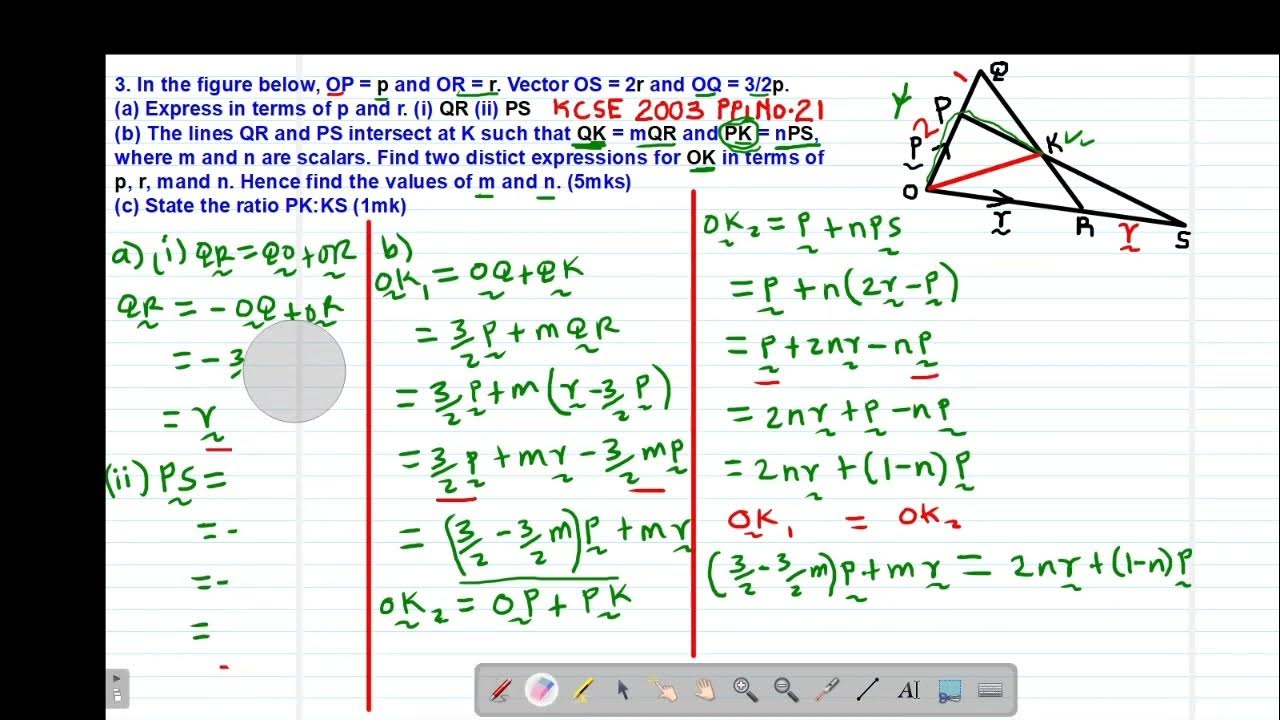 3. In the figure below, OP = p and OR = r. Vector OS = 2r and OQ = 3/2p.
(a) Express in terms of p and r. (i) QR (ii) PS KCSE 2003 PP1 No.21
(b) The lines QR and PS intersect at K such that QK = mQR and PK = nPS,
where m and n are scalars. Find two distict expressions for OK in terms of
p, r, mand n. Hence find the values of m and n. (5mks)
(c) State the ratio PK:KS (1mk)
Q
1
P
2
P
K
O
r
R
r
S
a) (i) QR = QO + OR
QR = - OQ + OR
= - 3
= r
(ii) PS =
= -
= -
=
b)
OK1 = OQ + QK
= 3/2 P + m QR
= 3/2 P + m (r - 3/2 P)
= 3/2 P + mr - 3/2 mp
= (3/2 - 3/2 m) P + mr
OK2 = OP + PK
OK2 = P + nPS
= P + n(2r - P)
= P + 2nr - nP
= 2nr + P - nP
= 2nr + (1-n) P
OK1 = OK2
(3/2 - 3/2 m) P + m r = 2nr + (1-n) P
AI